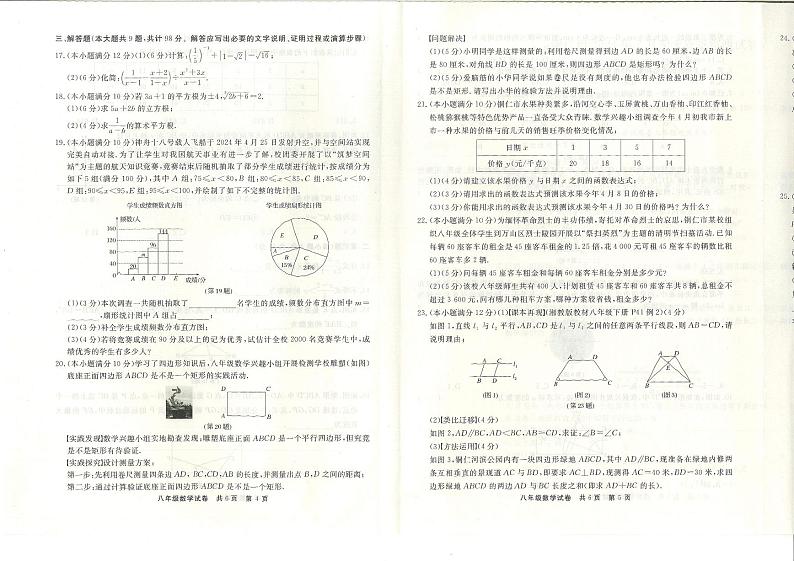 三、解答题(本大题共9题,共计98分。解答应写出必要的文字说明、证明过程或演算步骤)
17.(本小题满分12分)(1)(6分)计算:(1/2)⁻¹+|1-√2|-√16;
(2)(6分)化简:(1/(x-1)-(x+2)/(1-x))÷(x²+3x)/(x-1).
18.(本小题满分10分)若3a+1的平方根为±4,∛(2b+6)=2.
(1)(6分)求5a+2b的立方根;
(2)(4分)求1/(a-b)的算术平方根.
19.(本小题满分10分)神舟十八号载人飞船于2024年4月25日发射升空,并与空间站实现
完美自动对接.为了让学生对我国航天事业有进一步了解,校团委开展了以“筑梦空间
站”为主题的航天知识竞赛,竞赛结束后随机抽取了部分学生成绩进行统计,按成绩分为
如下5组(满分100分),其中A组:75≤x<80,B组:80≤x<85,C组:85≤x<90,
D组:90≤x<95,E组:95≤x<100,并绘制了如下不完整的统计图.
学生成绩频数直方图
学生成绩扇形统计图
频数/人
160
144
120
96
80
m
40
20
0
A B C D E
成绩/分
E
D
A
B
15%
C
24%
(第19题)
(1)(3分)本次调查一共随机抽取了______名学生的成绩,频数分布直方图中m=
______,扇形统计图中A组占______;
(2)(3分)补全学生成绩频数分布直方图;
(3)(4分)若将竞赛成绩在90分及以上的记为优秀,试估计全校2000名竞赛学生中,成
绩优秀的学生有多少人?
20.(本小题满分10分)学习了四边形知识后,八年级数学兴趣小组开展检测学校雕塑(如图)
底座正面四边形ABCD是不是一个矩形的实践活动.
D
C
A
B
(第20题)
[实践发现]数学兴趣小组实地勘查发现,雕塑底座正面ABCD是一个平行四边形,但究竟
是不是矩形有待验证.
[实践探究]设计测量方案:
第一步:先利用卷尺测量四条边AD,BC,CD,AB的长度,并测量出点B,D之间的距离;
第二步:通过计算验证底座正面四边形ABCD是不是一个矩形.
八年级数学试卷 共6页 第4页
[问题解决]
(1)(5分)小明同学是这样测量的,利用卷尺测量得到边AD的长是60厘米,边AB的长
是80厘米,对角线BD的长是100厘米,则四边形ABCD是矩形吗?为什么?
(2)(5分)爱脑筋的小华同学说如果卷尺是没有刻度的,他也有办法检验四边形ABCD
是不是矩形.请写出小华的检验方法并说明理由.
21.(本小题满分10分)铜仁市水果种类繁多,沿河空心李、玉屏黄桃、万山香柚、印江红香柚、
松桃猕猴桃等特色优势产品一直备受大众青睐.数学兴趣小组调查今年4月初我市新上
市一种水果的价格与前几天的销售旺季价格变化情况:
日期x 1 3 5 7
价格y(元/千克) 20 18 16 14
(1)(4分)请建立该水果价格y与日期x之间的函数表达式;
(2)(3分)请用求出的函数表达式预测该水果今年4月8日的价格;
(3)(3分)你能用求出的函数表达式预测该水果今年4月30日的价格吗?为什么?
22.(本小题满分10分)为缅怀革命烈士的丰功伟绩,寄托对革命烈士的哀思,铜仁市某校组
织八年级全体学生到万山区烈士陵园开展以“祭扫英烈”为主题的清明节扫墓活动.已知
每辆60座客车的租金是45座客车租金的1.25倍,花4000元可租45座客车的辆数比租
60座客车多2辆.
(1)(5分)问每辆45座客车租金和每辆60座客车租金分别是多少元?
(2)(5分)该校八年级师生共有400人,计划租赁45座客车和60座客车共8辆,总租金不
超过3600元,问有哪几种租车方案,哪种方案最省钱,租金多少?
23.(本小题满分12分)(1)[课本再现](湘教版教材八年级下册P41例2)(4分)
如图1,直线l₁与l₂平行,AB,CD是l₁与l₂之间的任意两条平行线段,则AB=CD,请
说明理由;
A C
l₁
B D
l₂
(图1)
A
D
B
C
(图2)
A D
E
B
C
(图3)
(第23题)
(2)[类比迁移](4分)
如图2,AD∥BC,AD<BC,AB=CD.求证:∠B=∠C;
(3)[方法运用](4分)
如图3,铜仁河滨公园内有一块四边形绿地ABCD,其中AD∥BC,现准备在绿地内修两
条互相垂直的景观道AC与BD,即要求AC⊥BD,现测得AC=40米,BD=30米,求四
边形绿地ABCD的两边AD与BC长度之和(即求AD+BC的长).
八年级数学试卷 共6页 第5页
24.
25.